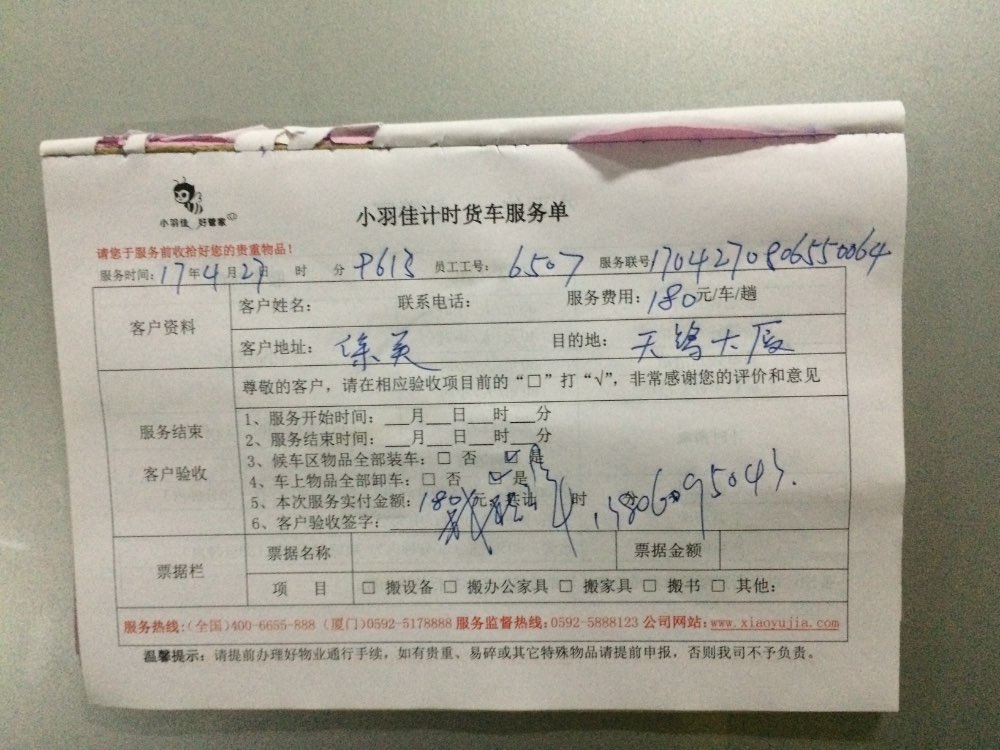 小羽佳 好管家
小羽佳计时货车服务单
请您于服务前收拾好您的贵重物品！
服务时间：17年4月27日 时 分 P613 员工工号：6507 服务联号1704270806550064
客户资料
客户姓名： 联系电话： 服务费用：180元/车/趟
客户地址： 目的地：天鸿大厦
服务结束
客户验收
尊敬的客户，请在相应验收项目前的“□”打“√”，非常感谢您的评价和意见
1、服务开始时间：___月___日___时___分
2、服务结束时间：___月___日___时___分
3、候车区物品全部装车：□ 否 ☑ 是
4、车上物品全部卸车：□ 否 ☑ 是
5、本次服务实付金额：180元，共计 时 分
6、客户验收签字：
票据栏
票据名称 票据金额
项 目 □ 搬设备 □ 搬办公家具 □ 搬家具 □ 搬书 □ 其他：
服务热线:(全国)400-6655-888 (厦门)0592-5178888 服务监督热线:0592-5888123 公司网站:www.xiaoyujia.com
温馨提示：请提前办理好物业通行手续，如有贵重、易碎或其它特殊物品请提前申报，否则我司不予负责。